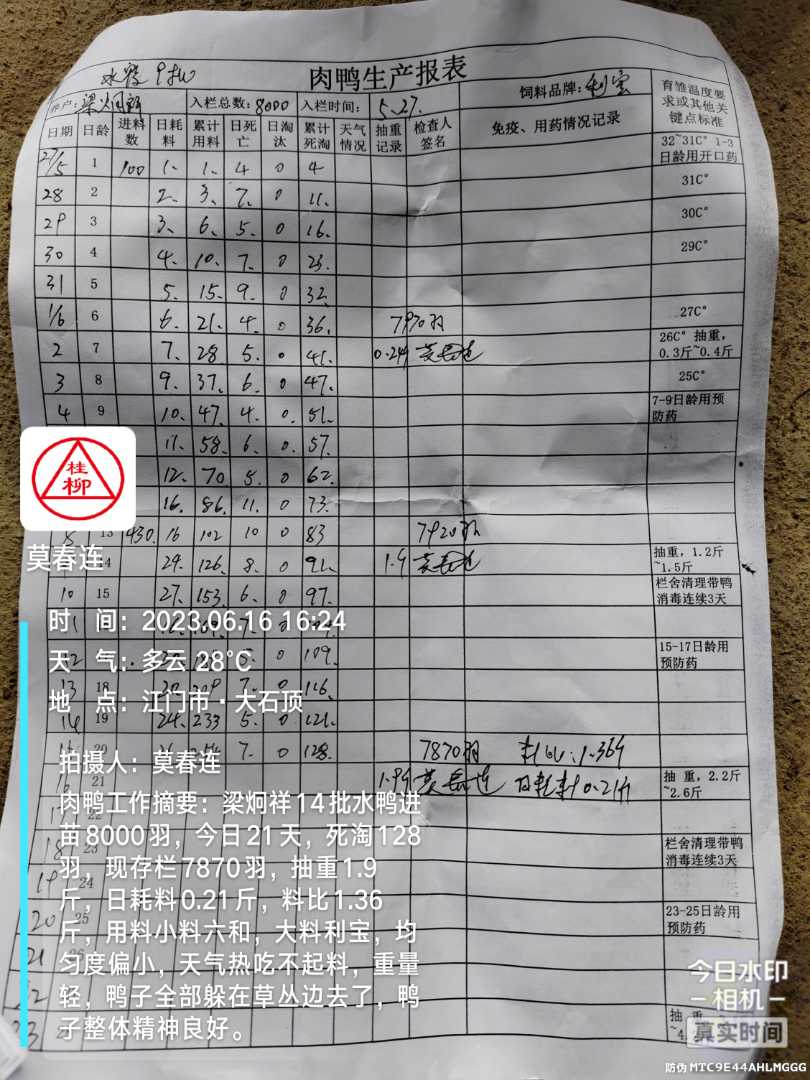 肉鸭生产报表
水鸭
户: 梁炯祥 入栏总数: 8000 入栏时间: 5.27. 饲料品牌: 利宝 育雏温度要求或其他关键点标准
日期 日龄 进料数 日耗料 累计用料 日死亡 日淘汰 累计死淘 天气情况 抽重记录 检查人签名 免疫、用药情况记录
27/5 1 100 1、 1、 4 0 4 32~31C° 1-3日龄用开口药
28 2 2、 3、 7、 0 11、 31C°
29 3 3、 6、 5、 0 16、 30C°
30 4 4、 10、 7、 0 23、 29C°
31 5 5、 15、 9、 0 32、
1/6 6 6、 21、 4、 0 36、 7970羽 27C°
2 7 7、 28 5、 0 41、 莫春连 26C° 抽重,0.3斤~0.4斤
3 8 9、 37、 6、 0 47、 25C°
4 9 10、 47、 4、 0、 51、 7-9日龄用预防药
11、 58、 6、 0、 57、
12、 70、 5、 0 62、
16、 86、 11、 0 73、
13 1430、 16 102 10 0 83 7920羽
14 24、 126、 8、 0 91、 1.9 莫春连 抽重,1.2斤~1.5斤
10 15 27、 153、 6、 0 97、 栏舍清理带鸭消毒连续3天
11
12 0 109、 15-17日龄用预防药
13 18 7、 0 116、
14 19 24、 233 5、 0 121、
20 7、 0 128、 7870羽 料比:1.369
21 莫春连 日耗料0.21斤 抽 重,2.2斤~2.6斤
17
18 23 栏舍清理带鸭消毒连续3天
19 24
20 25 23-25日龄用预防药
21
22
23 抽 重
桂柳
莫春连
时 间: 2023.06.16 16:24
天 气: 多云 28℃
地 点: 江门市·大石顶
拍摄人: 莫春连
肉鸭工作摘要: 梁炯祥14批水鸭进
苗8000羽，今日21天，死淘128
羽，现存栏7870羽，抽重1.9
斤，日耗料0.21斤，料比1.36
斤，用料小料六和，大料利宝，均
匀度偏小，天气热吃不起料，重量
轻，鸭子全部躲在草丛边去了，鸭
子整体精神良好。
今日水印
相机
真实时间
防伪 MTC9E44AHLMGGG